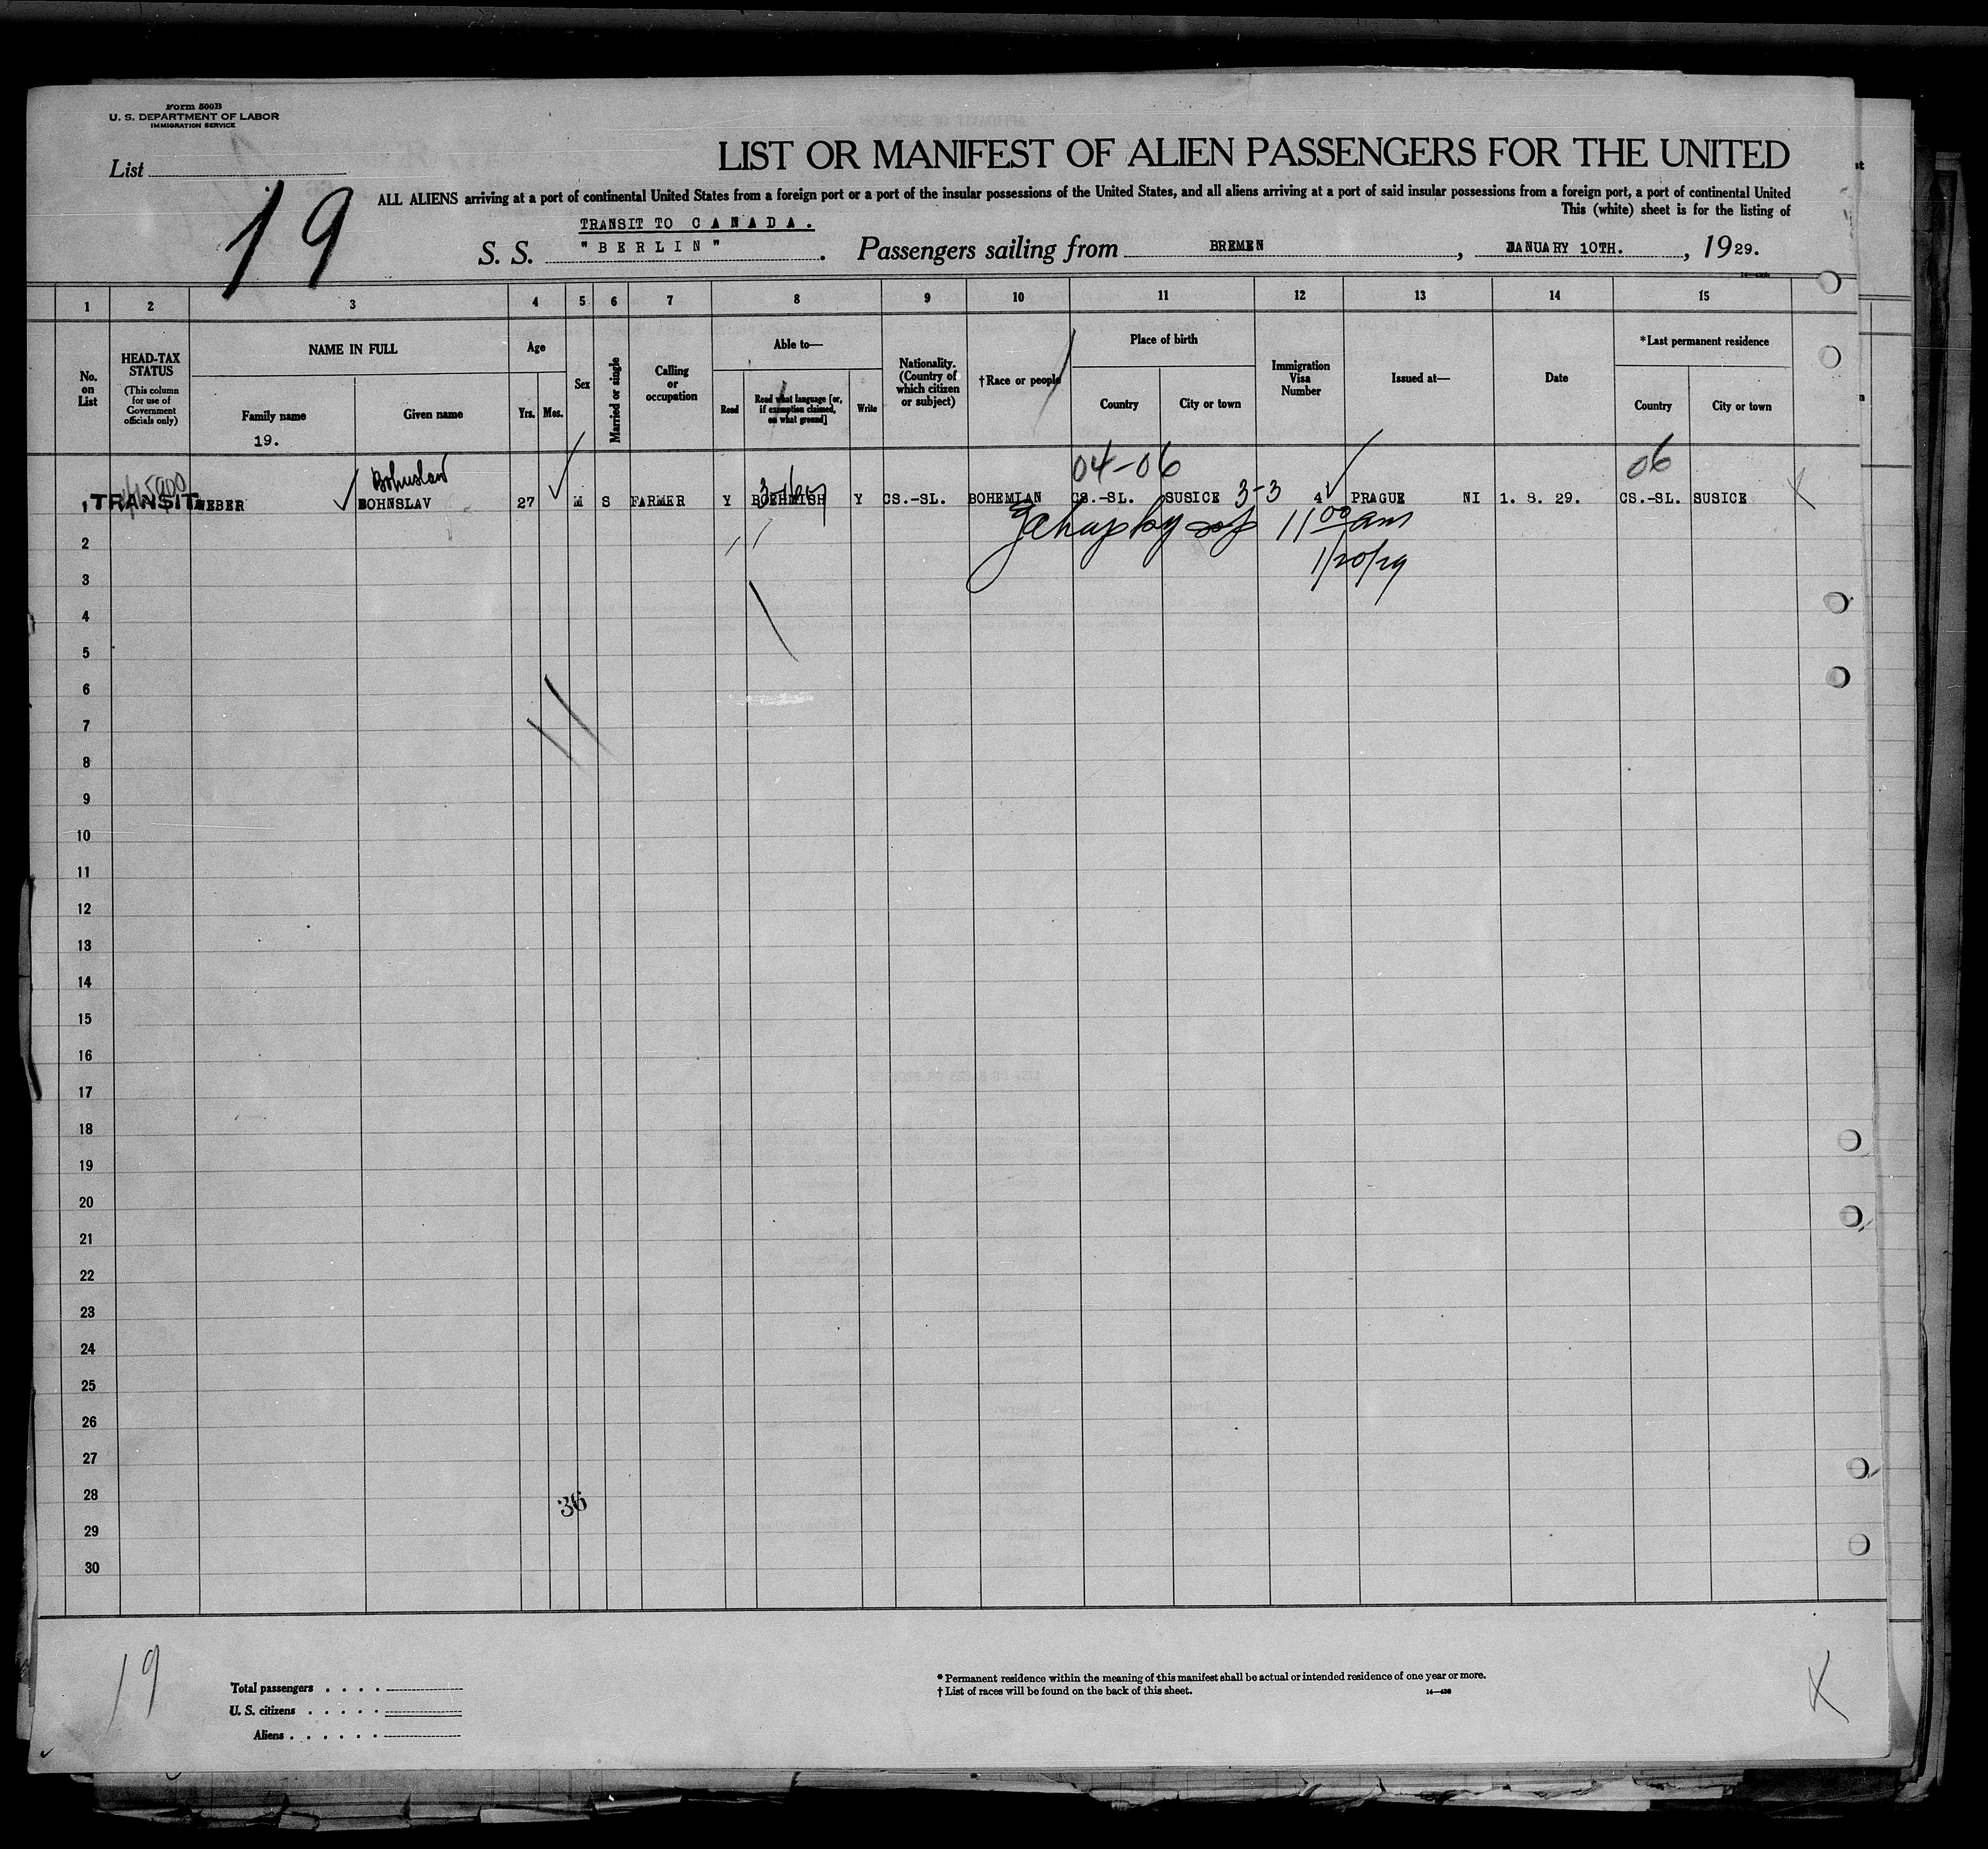 Form 500B
U. S. DEPARTMENT OF LABOR
IMMIGRATION SERVICE
List
19
LIST OR MANIFEST OF ALIEN PASSENGERS FOR THE UNITED
ALL ALIENS arriving at a port of continental United States from a foreign port or a port of the insular possessions of the United States, and all aliens arriving at a port of said insular possessions from a foreign port, a port of continental United
This (white) sheet is for the listing of
TRANSIT TO C A N A D A .
S. S. " B E R L I N " . Passengers sailing from BREMEN , JANUARY 10TH. , 1929.
1 2 3 4 5 6 7 8 9 10 11 12 13 14 15
No. on List
HEAD-TAX STATUS
(This column for use of Government officials only)
NAME IN FULL
Family name
Given name
Age
Yrs. Mos.
Sex
Married or single
Calling or occupation
Able to—
Read
Read what language [or, if exemption claimed, on what ground]
Write
Nationality. (Country of which citizen or subject)
†Race or people
Place of birth
Country
City or town
Immigration Visa Number
Issued at—
Date
*Last permanent residence
Country
City or town
19.
Bohuslav
04-06
06
1 TRANSIT WEBER BOHNSLAV 27 M S FARMER Y BOEHMISH Y CS.-SL. BOHEMIAN CS.-SL. SUSICE 3-3 4 PRAGUE NI 1. 8. 29. CS.-SL. SUSICE
11 00 am
2
1/20/29
3
4
5
6
7
8
9
10
11
12
13
14
15
16
17
18
19
20
21
22
23
24
25
26
27
28
36
29
30
19
Total passengers . . . .
U. S. citizens . . . . .
Aliens . . . . . .
* Permanent residence within the meaning of this manifest shall be actual or intended residence of one year or more.
† List of races will be found on the back of this sheet.